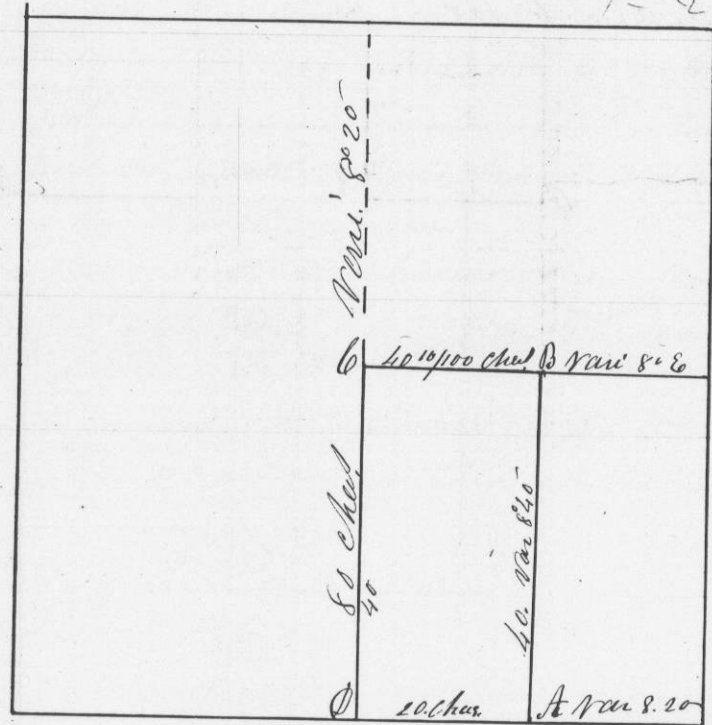 Vari. 8° 20
C 40 10/100 Chas B Vari 8° E
80 Chas
40
40. Var 8° 45
D 20. Chas. A Var 8. 20